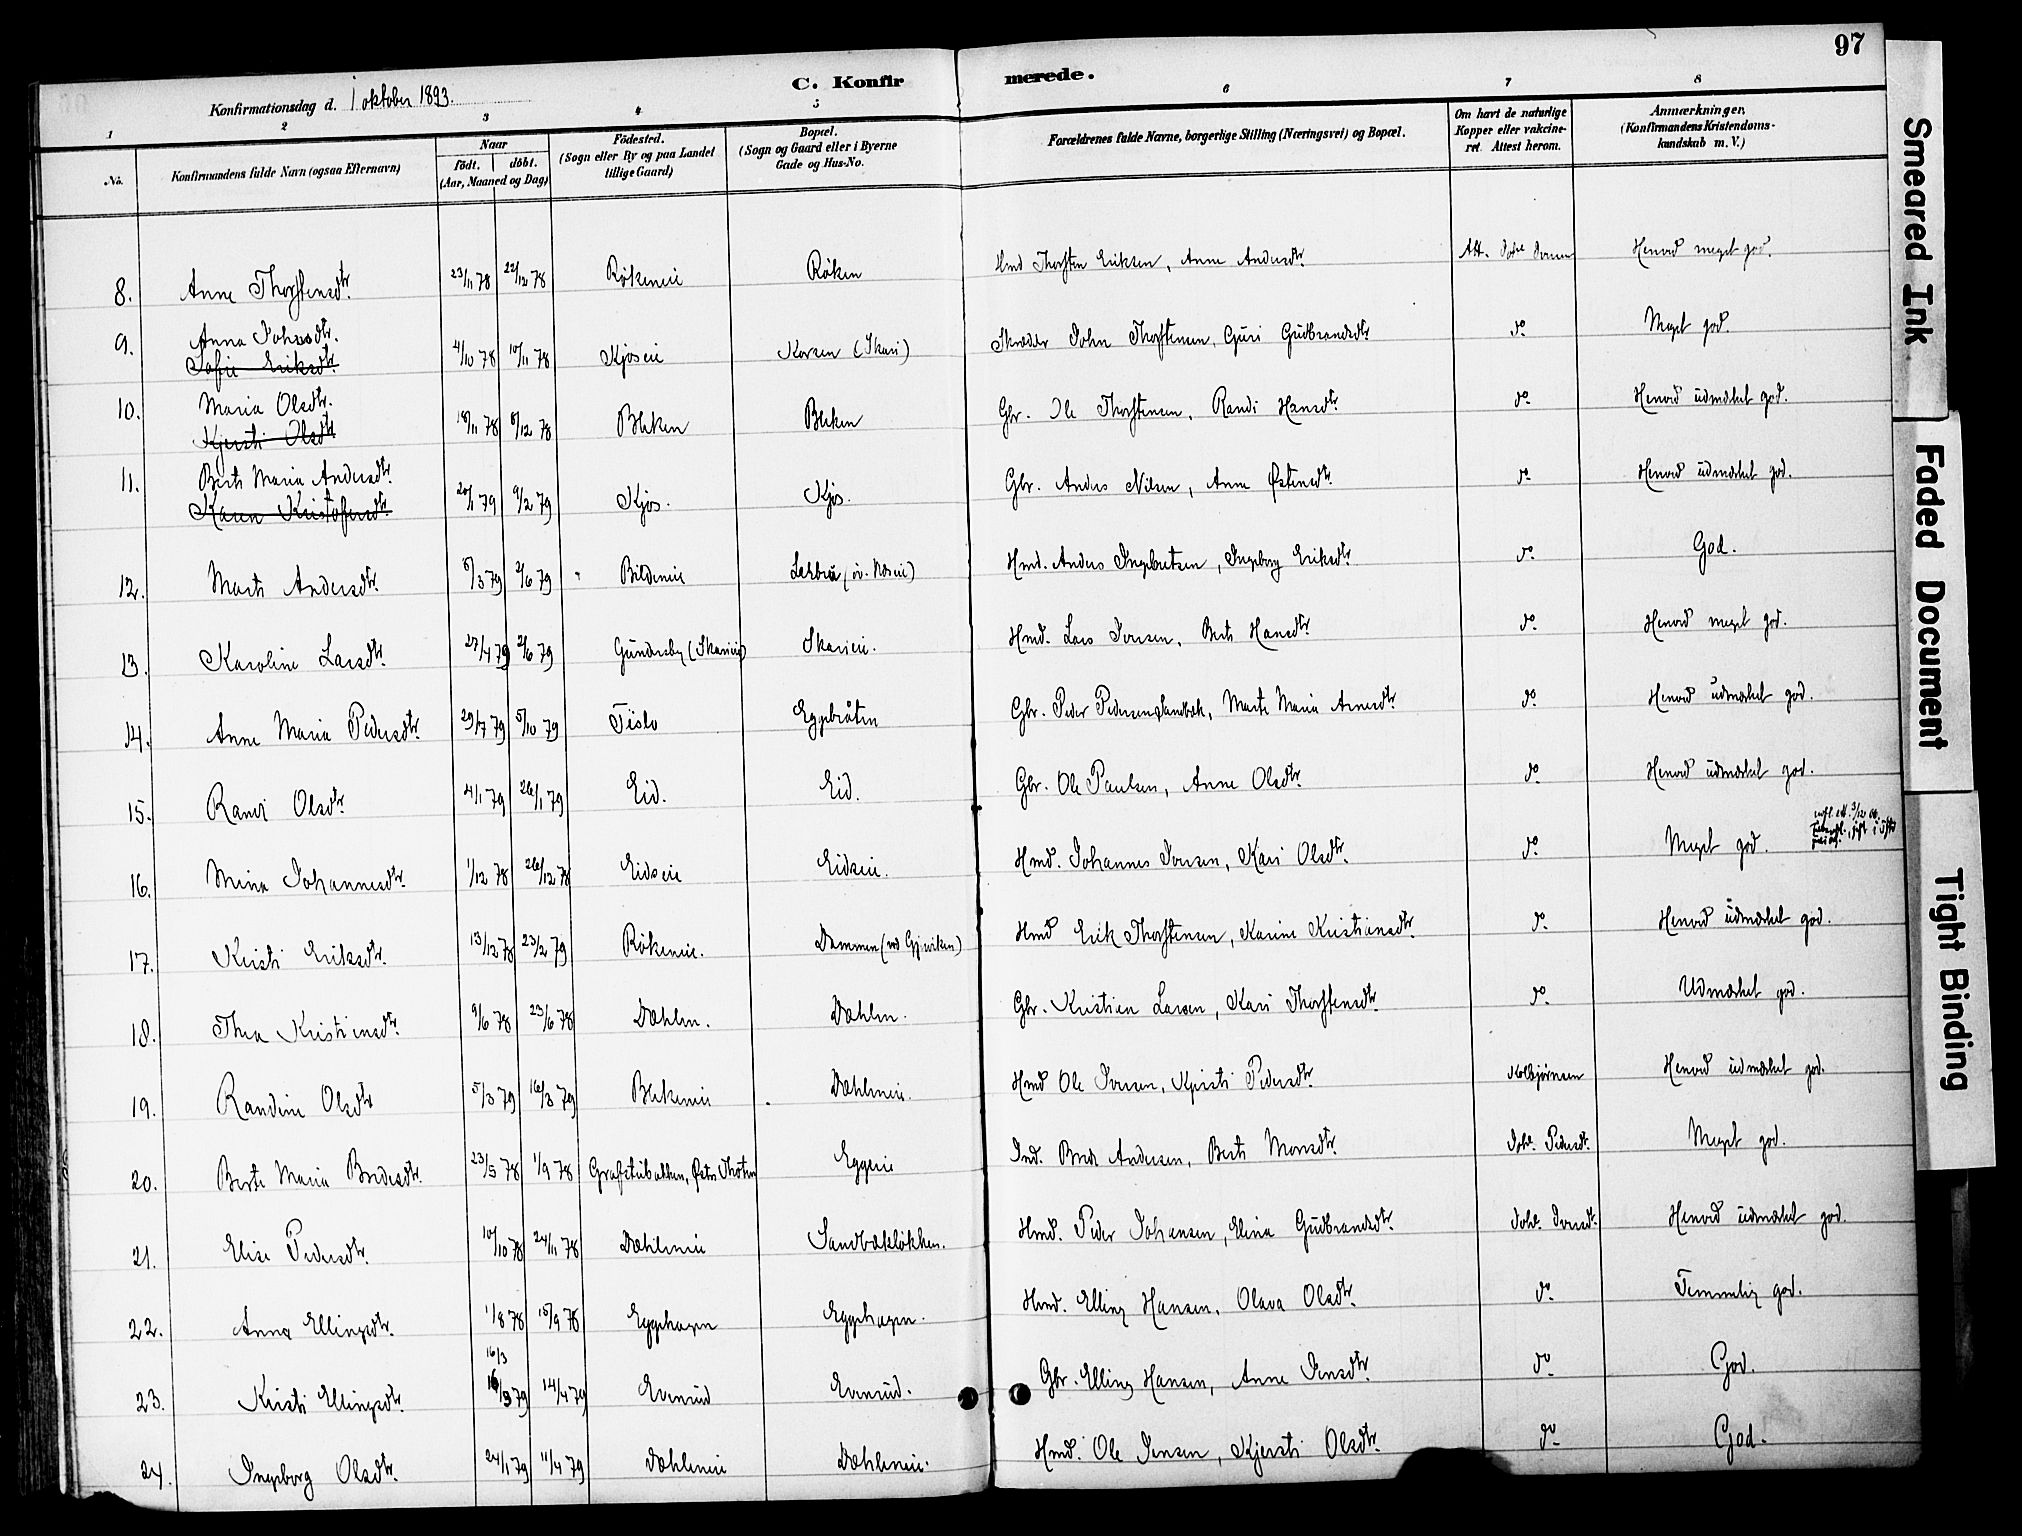 97
C. Konfirmerede.
Konfirmationsdag d. 1 oktober 1893.
1 2 3 4 5 6 7 8
No. Konfirmandens fulde Navn (ogsaa Efternavn) Naar födt. döbt. (Aar, Maaned og Dag) Födested. (Sogn eller By og paa Landet tillige Gaard) Bopæl. (Sogn og Gaard eller i Byerne Gade og Hus-No. Forældrenes fulde Navne, borgerlige Stilling (Næringsvei) og Bopæl. Om havt de naturlige Kopper eller vakcineret. Attest herom. Anmærkninger, (Konfirmandens Kristendomskundskab m. V.)
8. Anne Thorstensdtr. 23/11 78 22/12 78 Rökeneie Röken Hmd Thorsten Eriksen, Anne Andersdtr. Att. Henved meget god.
9. Anna Johnsdtr. Sofie Eriksdtr. 4/10 78 10/11 78 Kjöseie Korsen (Skari) Skræder John Thorstensen, Guri Gudbrandsdtr. do Meget god.
10. Maria Olsdtr. Kjersti Olsdtr. 18/11 78 8/12 78 Bleken Bleken Gbr. Ole Thorstensen, Randi Hansdtr. do Henved udmærket god.
11. Berte Maria Andersdtr. Karen Kristofersdtr. 20/1 79 9/2 79 Kjös. Kjös. Gbr. Anders Nilsen, Anne Østensdtr. do Henved udmærket god.
12. Marte Andersdtr. 8/3 79 2/6 79 Bildeneie Hmd. Anders Ingebretsen, Ingeborg Eriksdtr. do God.
13. Karoline Larsdtr. 27/4 79 2/6 79 Gundersby (Skarieie) Skarieie. Hmd. Lars Iversen, Berte Hansdtr. do Henved meget god.
14. Anne Maria Pedersdtr. 29/7 79 5/10 79 Tislo Eggebråten Gbr. Peder Pedersen Sandbæk, Marte Maria Arnesdtr. do Henved udmærket god.
15. Randi Olsdtr. 4/1 79 26/1 79 Eid. Eid. Gbr. Ole Paulsen, Anne Olsdtr. do Henved udmærket god.
16. Mina Johannesdtr. 1/12 78 26/12 78 Eidseie Eidseie. Hmd. Johannes Iversen, Kari Olsdtr. do Meget god.
17. Kristi Eriksdtr. 13/12 78 23/2 79 Rökeneie. Dammen (ved Gjöviken) Hmd Erik Thorstensen, Karine Kristiansdtr. do Henved udmærket god.
18. Thea Kristiansdtr. 9/6 78 23/6 78 Dæhlen. Dæhlen. Gbr. Kristian Larsen, Kari Thorstensdtr. do Udmærket god.
19. Randine Olsdtr 5/3 79 16/3 79 Blekeneie Dæhleneie. Hmd Ole Iversen, Kjersti Pedersdtr. Henved udmærket god.
20. Berte Maria Bredesdtr. 23/5 78 1/9 78 Grøfstubakken, Østre Thoten Eggeeie Ind. Brede Andersen, Berte Monsdtr. Meget god.
21. Elise Pedersdtr. 10/10 78 24/11 78 Dæhleneie Sandbækløkken. Hmd. Peder Johansen, Elina Gudbrandsdtr. Henved udmærket god.
22. Anna Ellingsdtr. 1/8 78 15/9 78 Eggehagen Eggehagen. Hmd. Elling Hansen, Olava Olsdtr. do Temmelig god.
23. Kristi Ellingsdtr. 16/3 16/3 79 14/4 79 Evenrud Evenrud. Gbr. Elling Hansen, Anne Jensdtr. do God.
24. Ingeborg Olsdtr. 24/1 79 11/4 79 Dæhleneie Dæhleneie. Hmd. Ole Jensen, Kjersti Olsdtr. do God.
Smeared Ink
Faded Document
Tight Binding